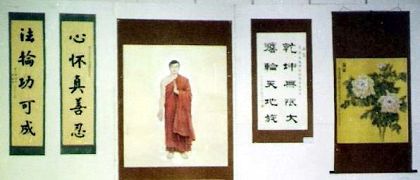 心懷真善忍
法輪功可成
乾坤無限大
灋輪天地旋